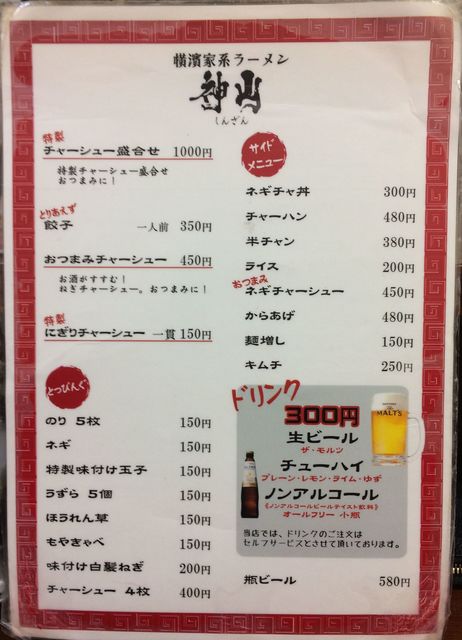 横濱家系ラーメン
神山
しんざん
特製
チャーシュー盛合せ 1000円
特製チャーシュー盛合せ
おつまみに！
とりあえず
餃子 一人前 350円
おつまみチャーシュー 450円
お酒がすすむ！
ねぎチャーシュー。おつまみに！
特製
にぎりチャーシュー 一貫 150円
とっぴんぐ
のり 5枚 150円
ネギ 150円
特製味付け玉子 150円
うずら 5個 150円
ほうれん草 150円
もやきゃべ 150円
味付け白髪ねぎ 200円
チャーシュー 4枚 400円
サイド
メニュー
ネギチャ丼 300円
チャーハン 480円
半チャン 380円
ライス 200円
おつまみ
ネギチャーシュー 450円
からあげ 480円
麺増し 150円
キムチ 250円
ドリンク
300円
生ビール
ザ・モルツ
チューハイ
プレーン・レモン・ライム・ゆず
ノンアルコール
《ノンアルコールビールテイスト飲料》
オールフリー 小瓶
MALT'S
当店では、ドリンクのご注文は
セルフサービスとさせて頂いております。
瓶ビール 580円